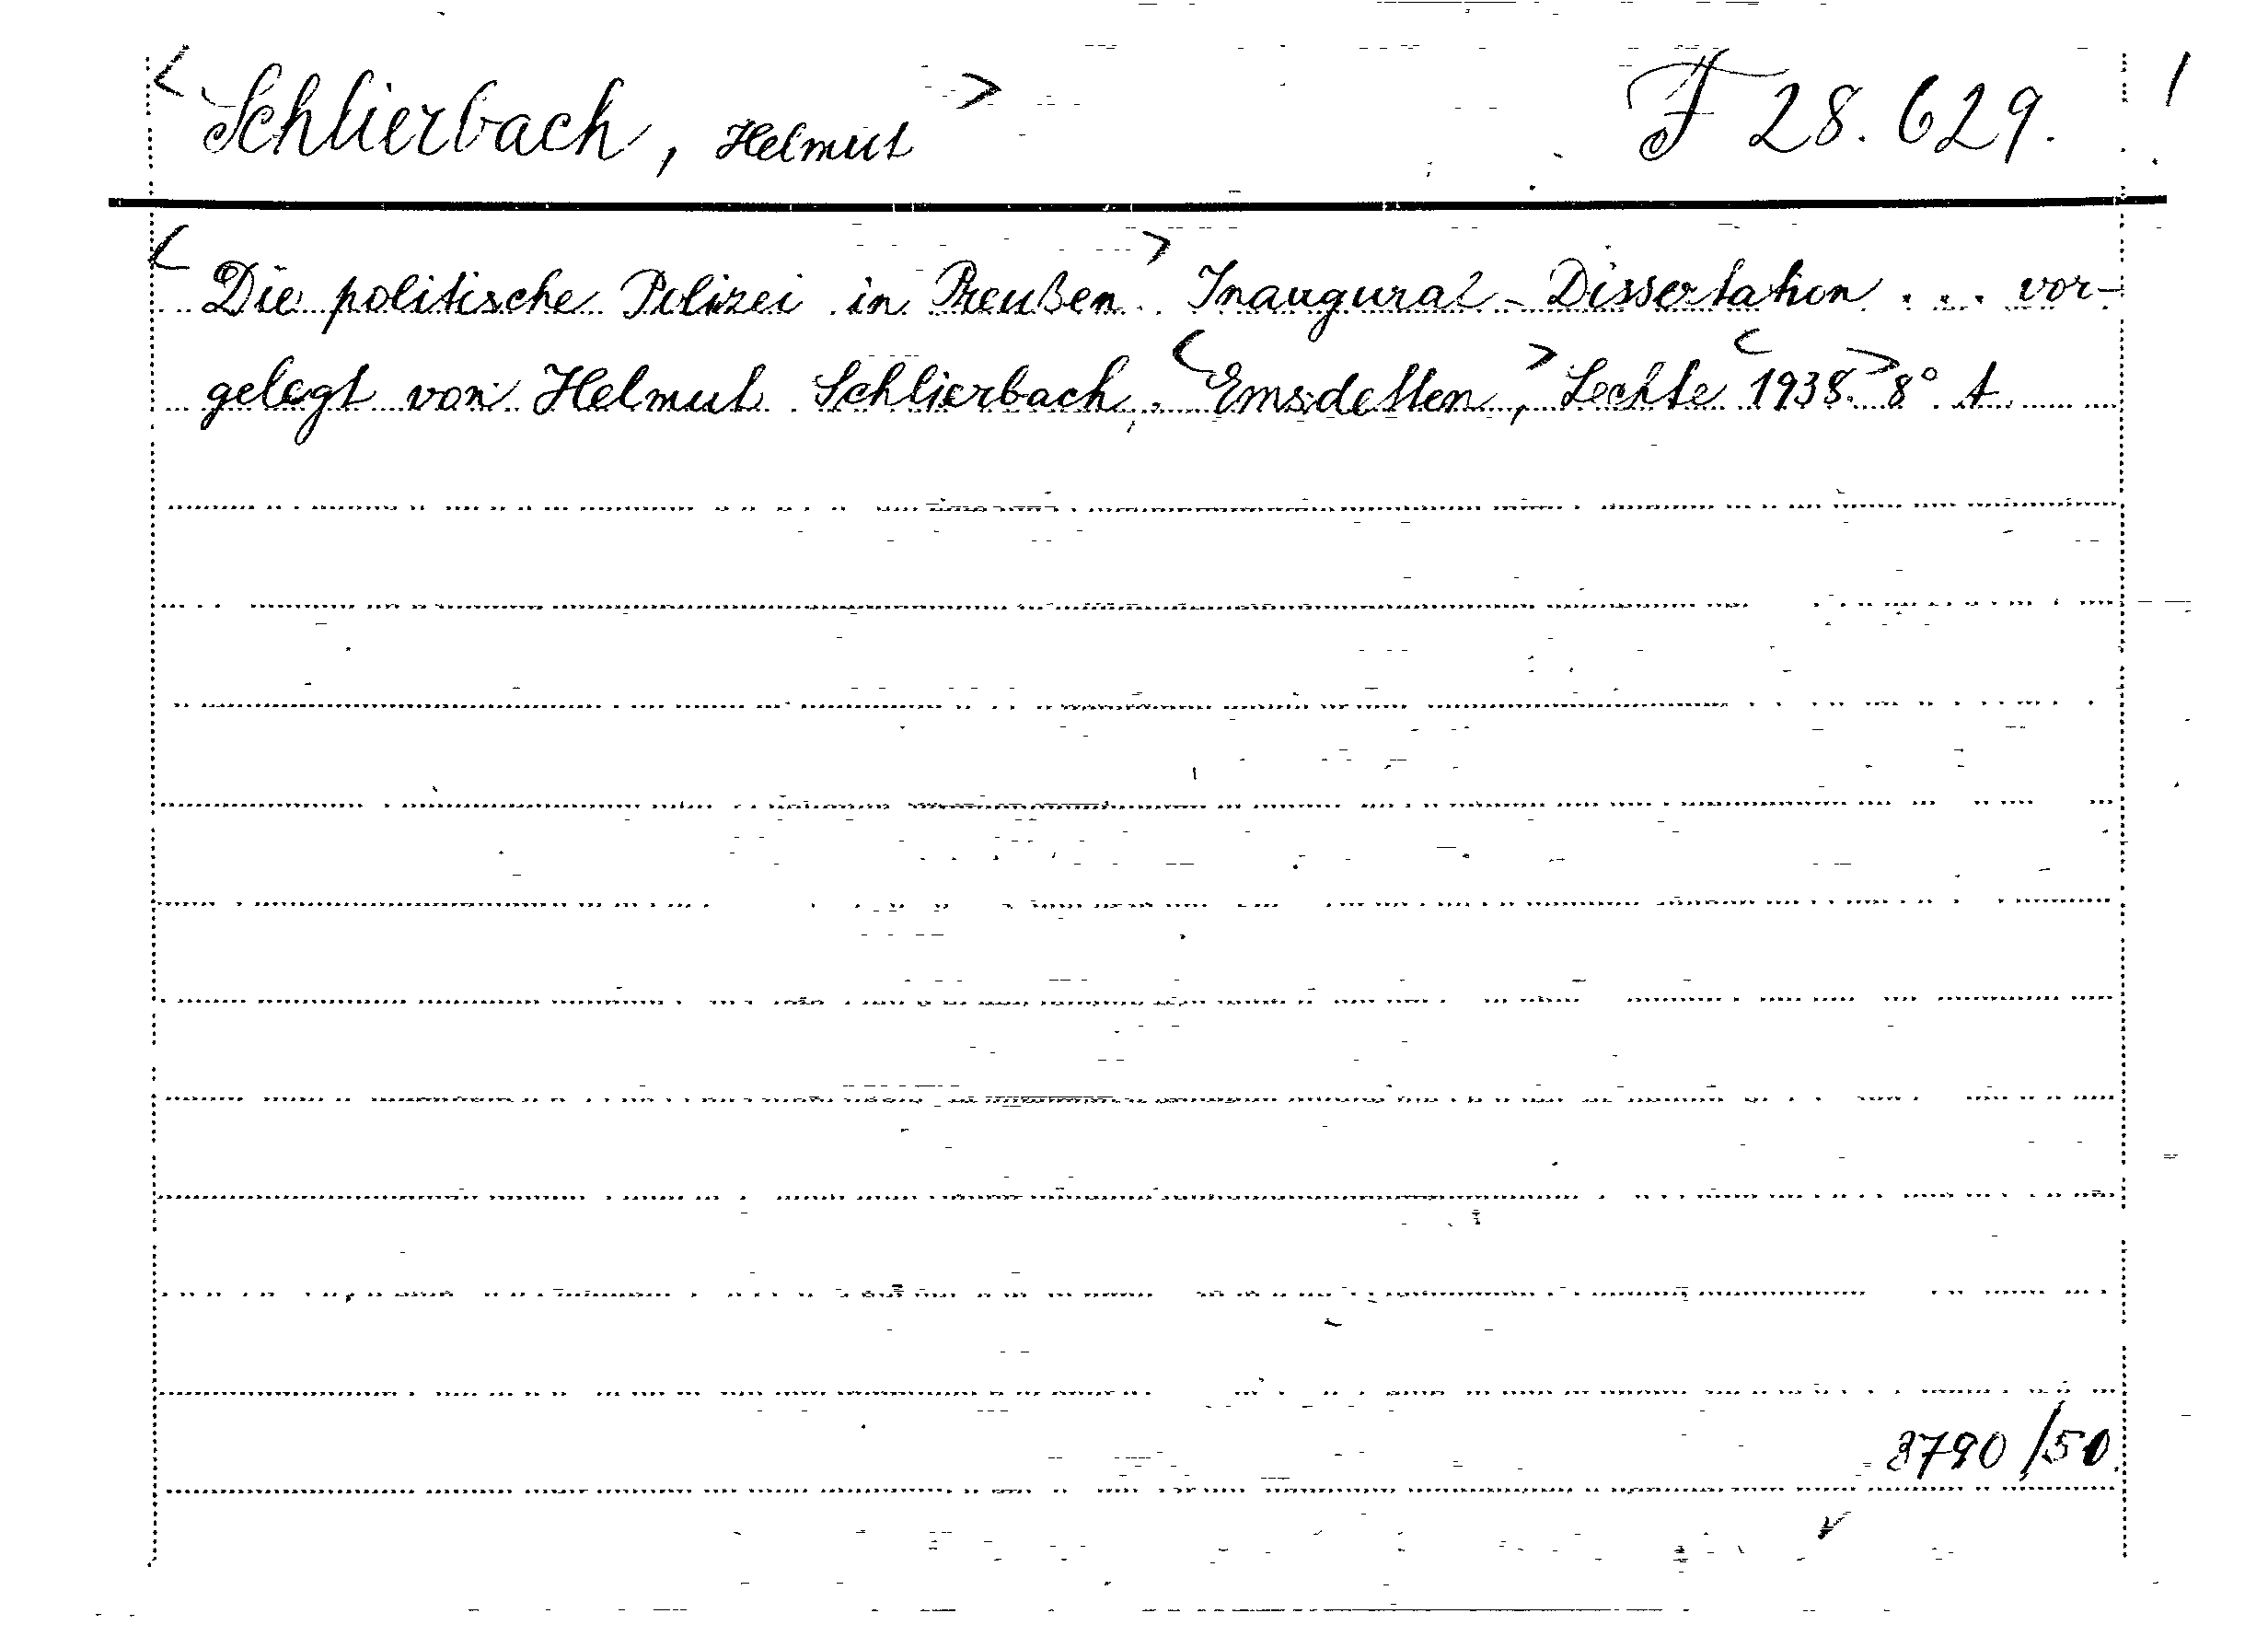 < Schlierbach, Helmut > F 28.629. /
< Die politische Polizei in Preußen. > Inaugural-Dissertation ... vor-
gelegt von Helmut Schlierbach. < Emsdetten, > Lechte < 1938. > 8° A
3790/50.